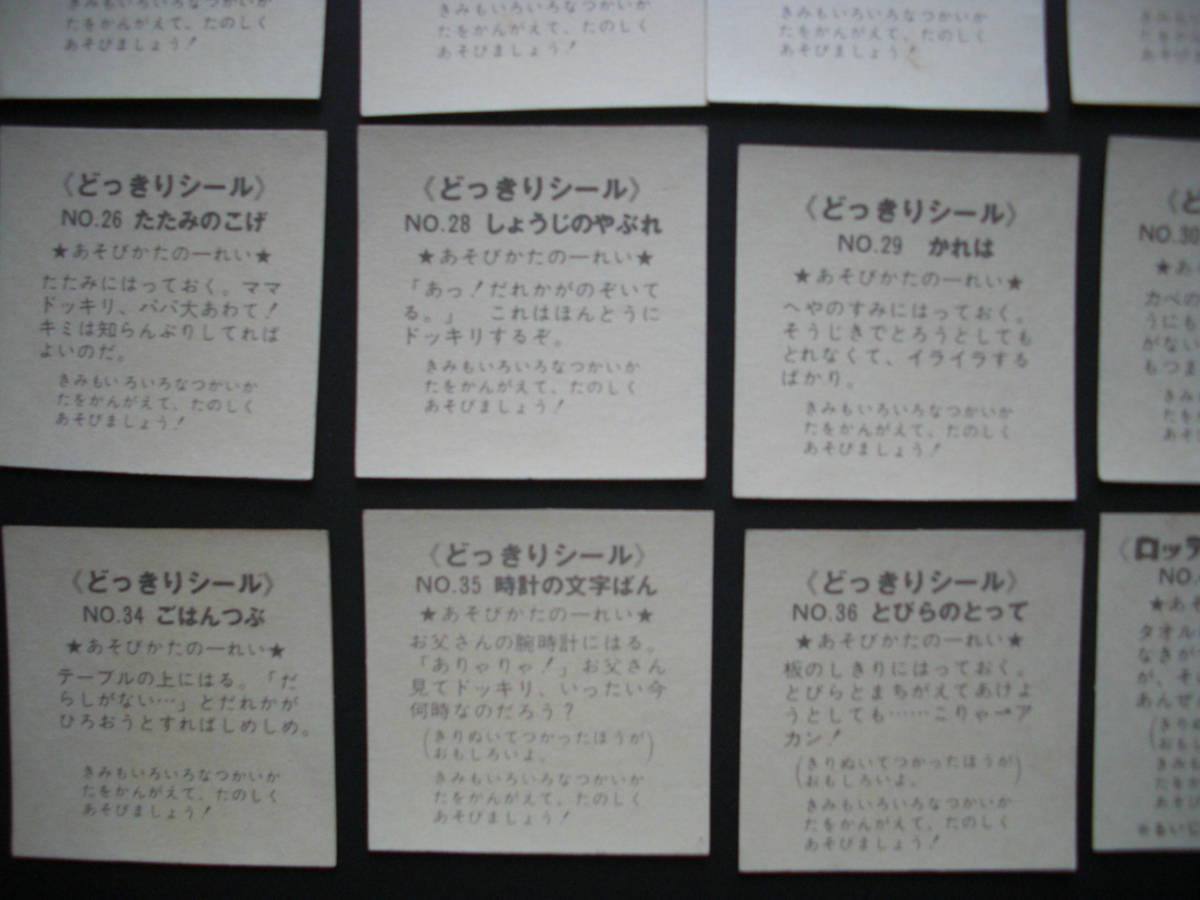 きみもいろいろなつかいか
たをかんがえて、たのしく
あそびましょう!
きみもいろいろなつかいか
たをかんがえて、たのしく
あそびましょう!
きみもいろいろなつかいか
たをかんがえて、たのしく
あそびましょう!
きみもい
たをかん
あそびま
《どっきりシール》
NO.26 たたみのこげ
★あそびかたの一れい★
たたみにはっておく。ママ
ドッキリ、パパ大あわて!
キミは知らんぷりしてれば
よいのだ。
きみもいろいろなつかいか
たをかんがえて、たのしく
あそびましょう!
《どっきりシール》
NO.28 しょうじのやぶれ
★あそびかたの一れい★
「あっ!だれかがのぞいて
る。」 これはほんとうに
ドッキリするぞ。
きみもいろいろなつかいか
たをかんがえて、たのしく
あそびましょう!
《どっきりシール》
NO.29 かれは
★あそびかたの一れい★
へやのすみにはっておく。
そうじきでとろうとしても
とれなくて、イライラする
ばかり。
きみもいろいろなつかいか
たをかんがえて、たのしく
あそびましょう!
《ど
NO.30
★あ
カベの
うにも
がない
もつま
きみ
たを
あそ
《どっきりシール》
NO.34 ごはんつぶ
★あそびかたの一れい★
テーブルの上にはる。「だ
らしがない…」とだれかが
ひろおうとすればしめしめ。
きみもいろいろなつかいか
たをかんがえて、たのしく
あそびましょう!
《どっきりシール》
NO.35 時計の文字ばん
★あそびかたの一れい★
お父さんの腕時計にはる。
「ありゃりゃ!」お父さん
見てドッキリ、いったい今
何時なのだろう?
(きりぬいてつかったほうが
おもしろいよ。)
きみもいろいろなつかいか
たをかんがえて、たのしく
あそびましょう!
《どっきりシール》
NO.36 とびらのとって
★あそびかたの一れい★
板のしきりにはっておく。
とびらとまちがえてあけよ
うとしても……こりゃーア
カン!
(きりぬいてつかったほうが
おもしろいよ。)
きみもいろいろなつかいか
たをかんがえて、たのしく
あそびましょう!
《ロッテ
NO.
★あそ
タオル
なきが
が、そ
あんぜ
(きりぬ
おもし
きみも
たをか
あそび